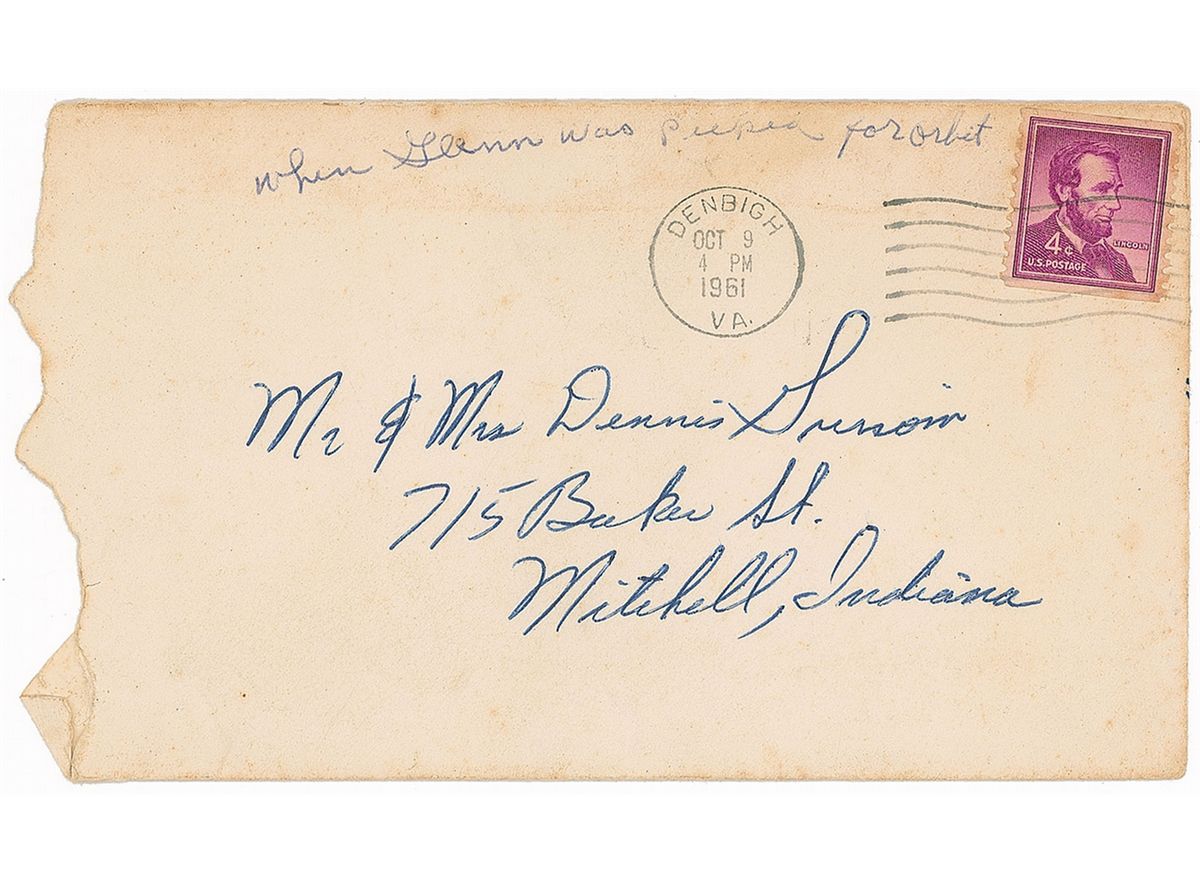 when Glenn was picked for orbit
DENBIGH
OCT 9
4 PM
1961
VA.
4¢
LINCOLN
U.S. POSTAGE
Mr & Mrs Dennis Grissom
715 Baker St.
Mitchell, Indiana